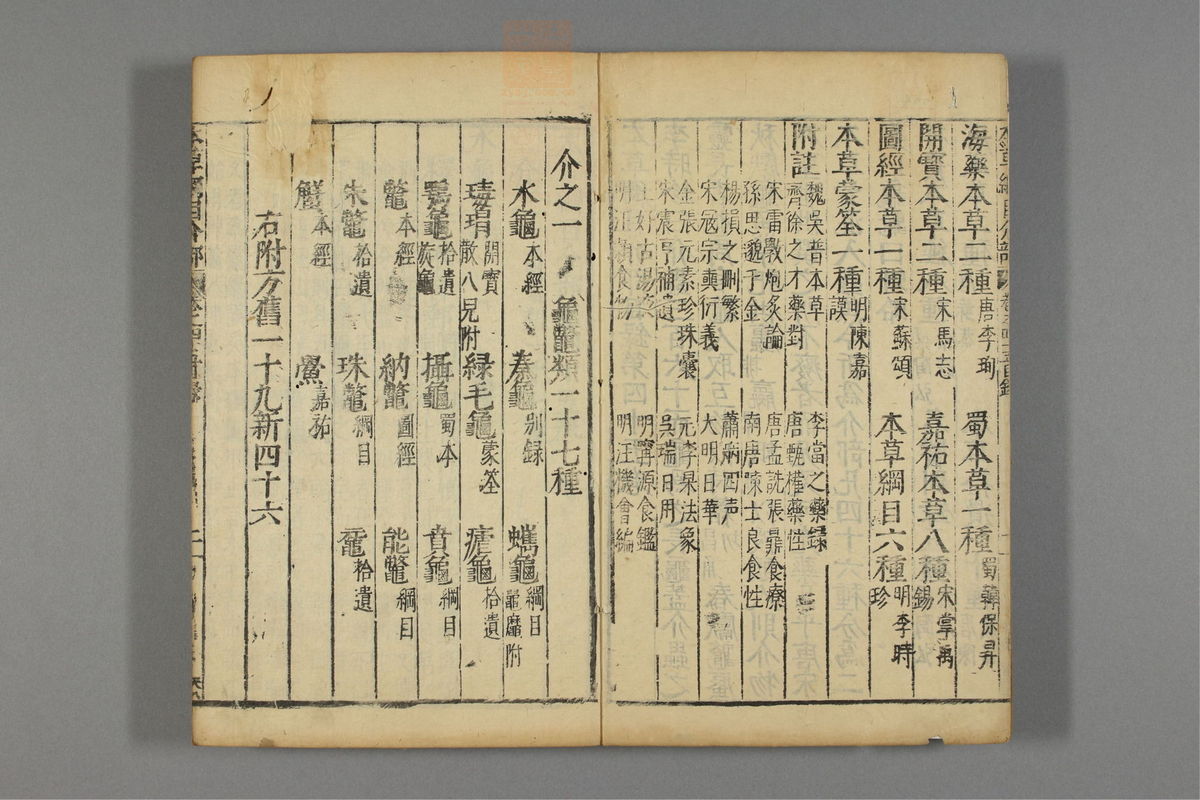 海藥本草二種 唐李珣 蜀本草一種 蜀韓保昇
開寶本草二種 宋馬志 嘉祐本草八種 宋掌禹錫
圖經本草一種 宋蘇頌 本草綱目六種 明李時珍
本草蒙筌一種 明陳嘉謨
附註
魏吳普本草 李當之藥錄
齊徐之才藥對 唐甄權藥性
宋雷斆炮炙論 唐孟詵張鼎食療
孫思邈千金 南唐陳士良食性
楊損之刪繁 蕭炳四声
宋寇宗奭衍義 大明日華
金張元素珍珠囊 元李杲法象
宋震亨補遺 吳瑞日用
王好古湯液 明寧源食鑑
明汪穎食物 明汪機會編
介之一 龜鱉類一十七種
水龜本經 秦龜別録 蠵龜綱目 鼊䴢附
瑇瑁開寶 撒八兒附 緑毛龜蒙筌 瘧龜拾遺
鶚龜拾遺 旋龜附 攝龜蜀本 賁龜綱目
鼈本經 納鼈圖經 能鼈綱目
朱鼈拾遺 珠鼈綱目 黿拾遺
蟹本經 鱟嘉祐
右附方舊一十九新四十六